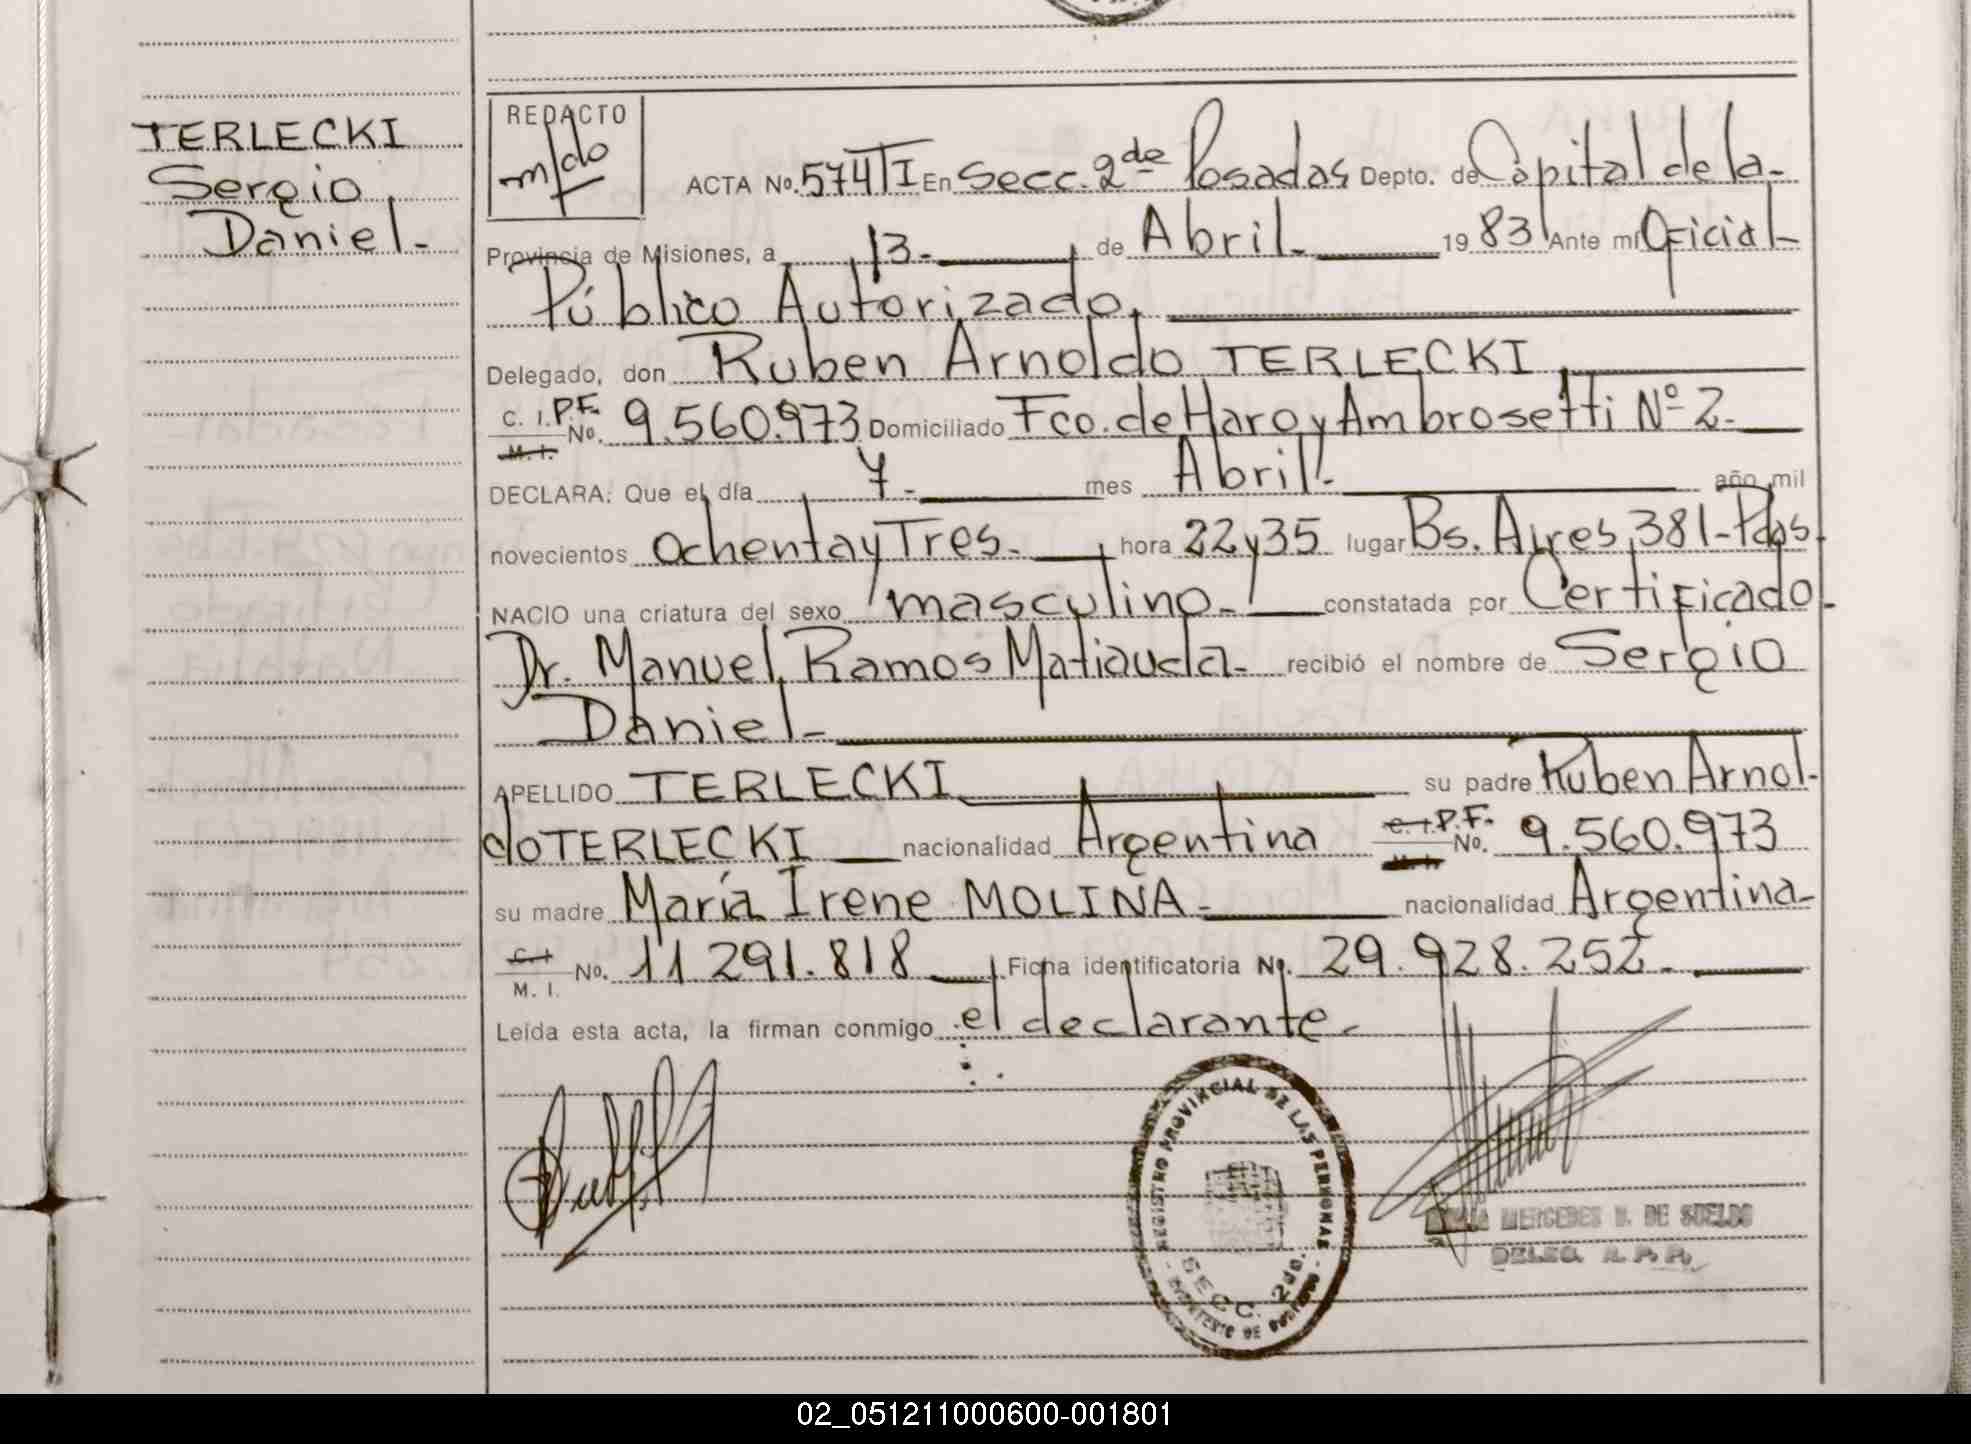 TERLECKI
Sergio
Daniel.-
REDACTO
ACTA No. 574TI En Secc. 2da Posadas Depto. de Capital de la-
Provincia de Misiones, a 13.- de Abril.- 1983 Ante mí Oficial-
Público Autorizado.
Delegado, don Ruben Arnoldo TERLECKI
C. I. P.F. No. 9.560.973 Domiciliado Fco. de Haro y Ambrosetti Nº 2.-
M. I.
DECLARA: Que el día 7.- mes Abril.- año mil
novecientos ochenta y Tres.- hora 22 y 35 lugar Bs. Aires 381-Pdas.
NACIO una criatura del sexo masculino.- constatada por Certificado-
Dr. Manuel Ramos Matiauda.- recibió el nombre de Sergio
Daniel.-
APELLIDO TERLECKI su padre Ruben Arnol-
do TERLECKI nacionalidad Argentina C. I. P.F. No. 9.560.973
M. I.
su madre María Irene MOLINA.- nacionalidad Argentina-
C. I. No. 11.291.818 Ficha identificatoria No. 29.928.252.-
M. I.
Leída esta acta, la firman conmigo el declarante.-
REGISTRO PROVINCIAL DE LAS PERSONAS
SECC. 2da.
MERCEDES DE SUELDO
DELEG. R. P. P.
02_051211000600-001801